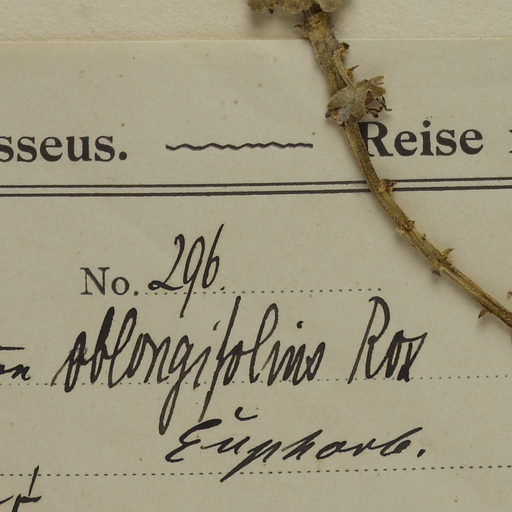 sseus. Reise
No. 296.
oblongifolius Rox
Euphorb.